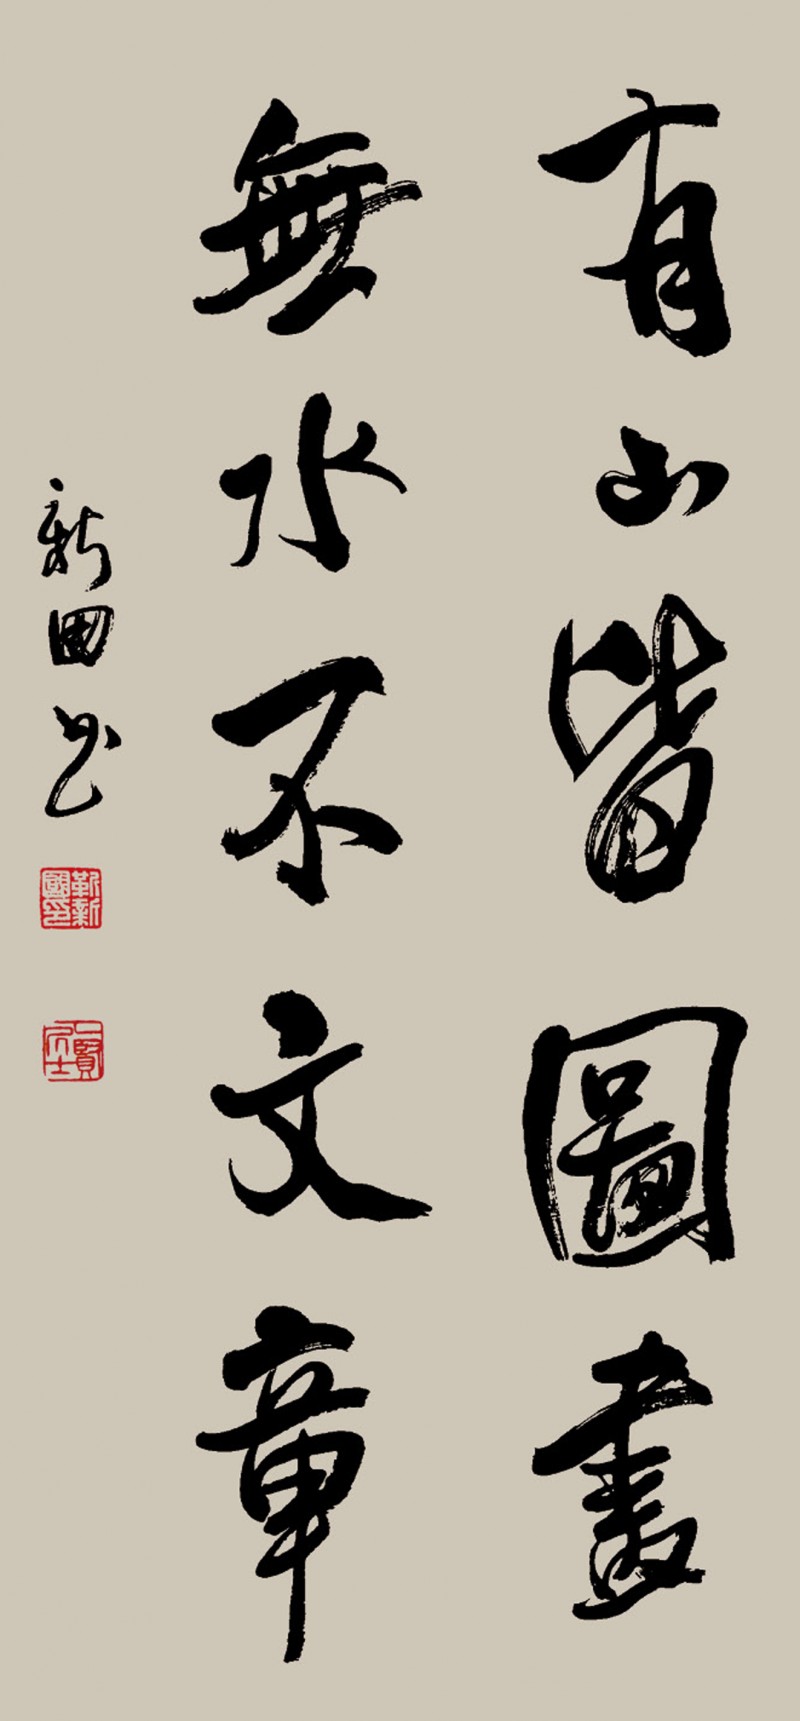 有山皆圖畫
無水不文章
新国书
靳新國印